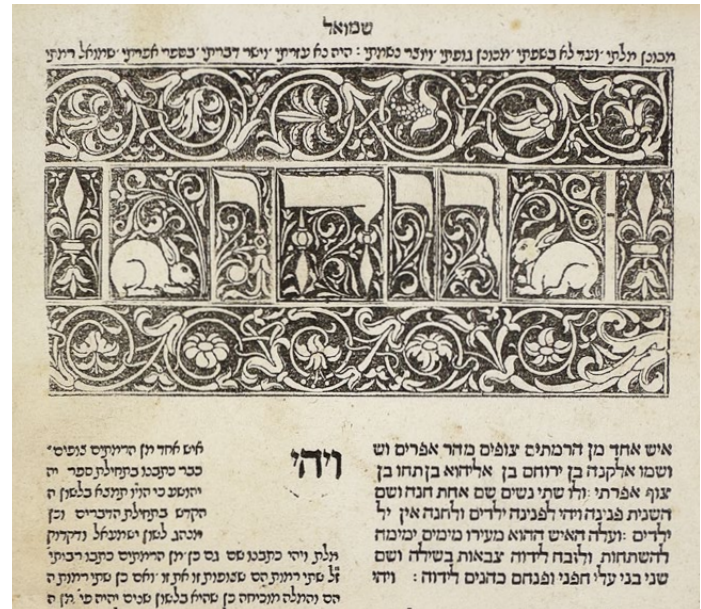 שמואל
מכונן מלתי ׳ ועד לא בשפתי ׳ מכונן גופתי ׳ ויוצר נשמתי : היה נא עזרתי ׳ וישר דברתי ׳ בספר אפרתי ׳ שמואל רמתי
ויהי
איש אחד מן הרמתים צופים מהר אפרים וש
ושמו אלקנה בן ירוחם בן אליהוא בן תחו בן
צוף אפרתי : ולו שתי נשים שם אחת חנה ושם
השנית פנינה ויהי לפנינה ילדים ולחנה אין יל
ילדים : ועלה האיש ההוא מעירו מימים ימימה
להשתחות ולזבח לידוה צבאות בשילה ושם
שני בני עלי חפני ופנחס כהנים לידוה : ויהי
ויהי
איש אחד מן הרמתים צופים״
כבר כתבנו בתחילת ספר יה
יהושע כי הו״ו תמצא בלשון ה
הקדש בתחילת הדברים וכן
מנהג לשון ישמעאל ודקדוק
מלת ויהי כתבנו שם גם כן ׳ מן הרמתים כתבו רבותי׳
ז״ל שתי רמות הם שצופות זו את זו ׳ ואם כן שתי רמות ה
הם והמלה מוכיחה כן שהיא בלשון שנים יהיה פי׳ מן ה